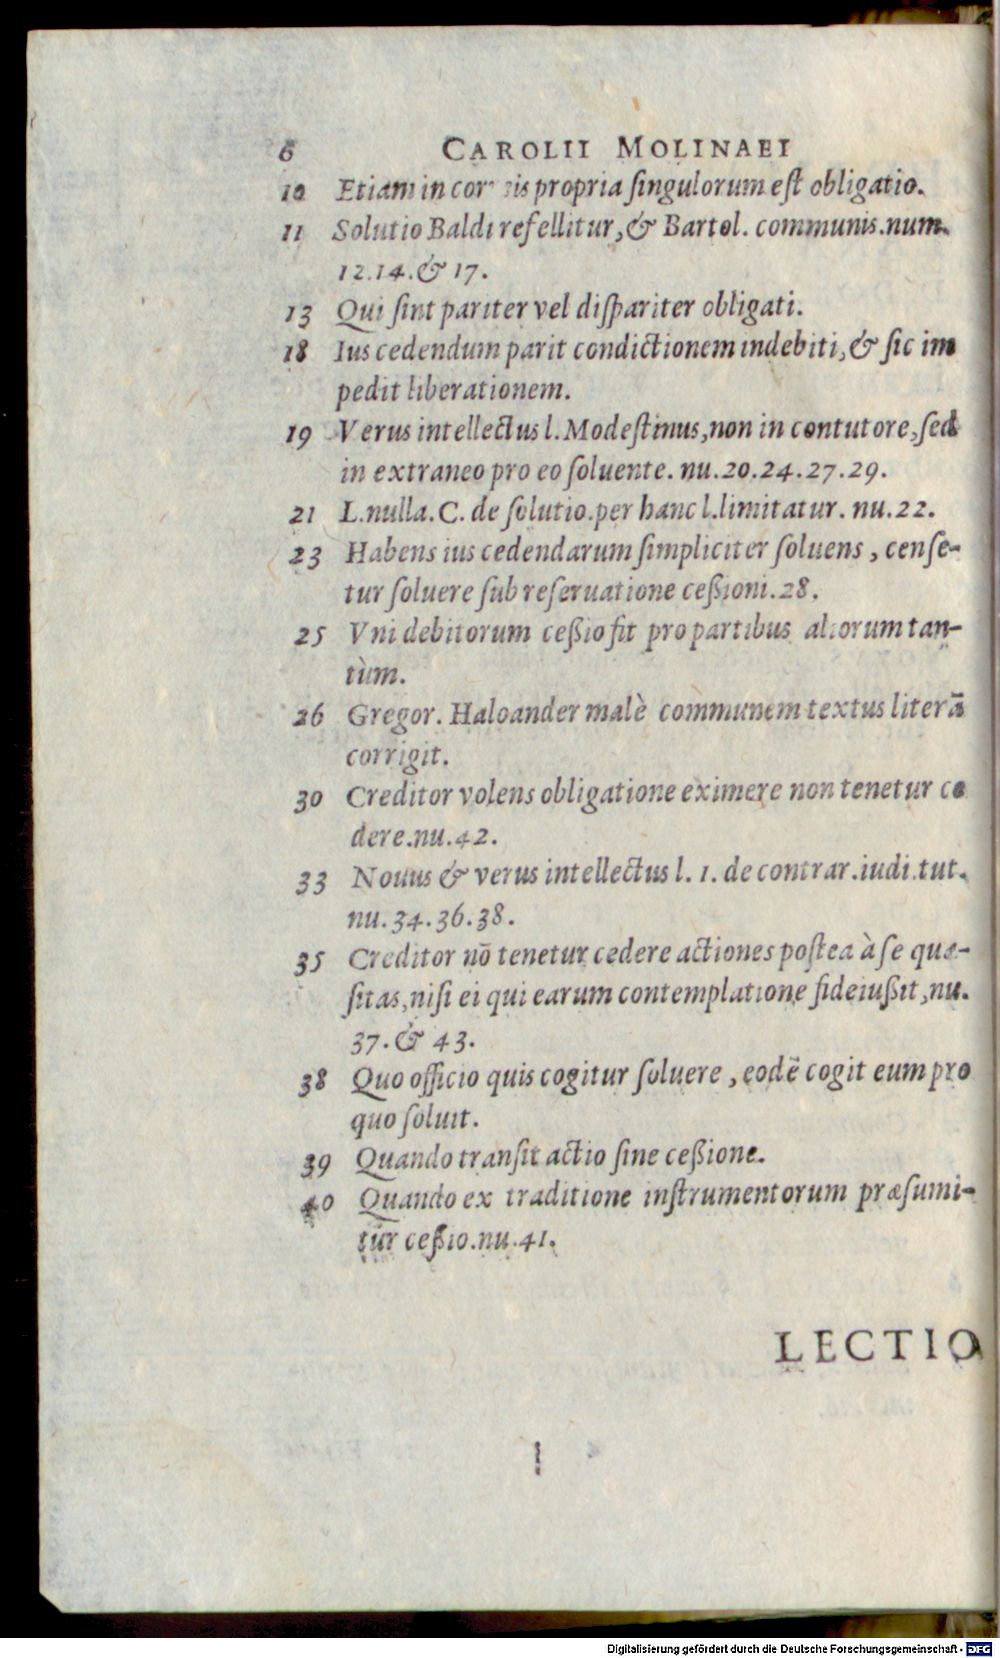 6 CAROLII MOLINAEI
10 Etiam in propria ſingulorum eſt obligatio.
11 Solutio Baldi refellitur, & Bartol. communis. num.
12.14. & 17.
13 Qui ſint pariter vel diſpariter obligati.
18 Ius cedendum parit condictionem indebiti, & ſic im
pedit liberationem.
19 Verus intellectus l. Modeſtinus, non in contutore, ſed
in extraneo pro eo ſoluente. nu. 20.24.27.29.
21 L. nulla. C. de ſolutio. per hanc l. limitatur. nu. 22.
23 Habens ius cedendarum ſimpliciter ſoluens, cenſe-
tur ſoluere ſub reſeruatione ceßioni. 28.
25 Vni debitorum ceßio fit pro partibus aliorum tan-
tùm.
26 Gregor. Haloander malè communem textus literā
corrigit.
30 Creditor volens obligatione eximere non tenetur ce
dere. nu. 42.
33 Nouus & verus intellectus l. 1. de contrar. iudi. tut.
nu. 34.36.38.
35 Creditor nō tenetur cedere actiones poſtea à ſe quæ-
ſitas, niſi ei qui earum contemplatione fideiußit, nu.
37. & 43.
38 Quo officio quis cogitur ſoluere, eodē cogit eum pro
quo ſoluit.
39 Quando tranſit actio ſine ceßione.
40 Quando ex traditione inſtrumentorum præſumi-
tur ceßio. nu. 41.
LECTIO
Digitalisierung gefördert durch die Deutsche Forschungsgemeinschaft - DFG